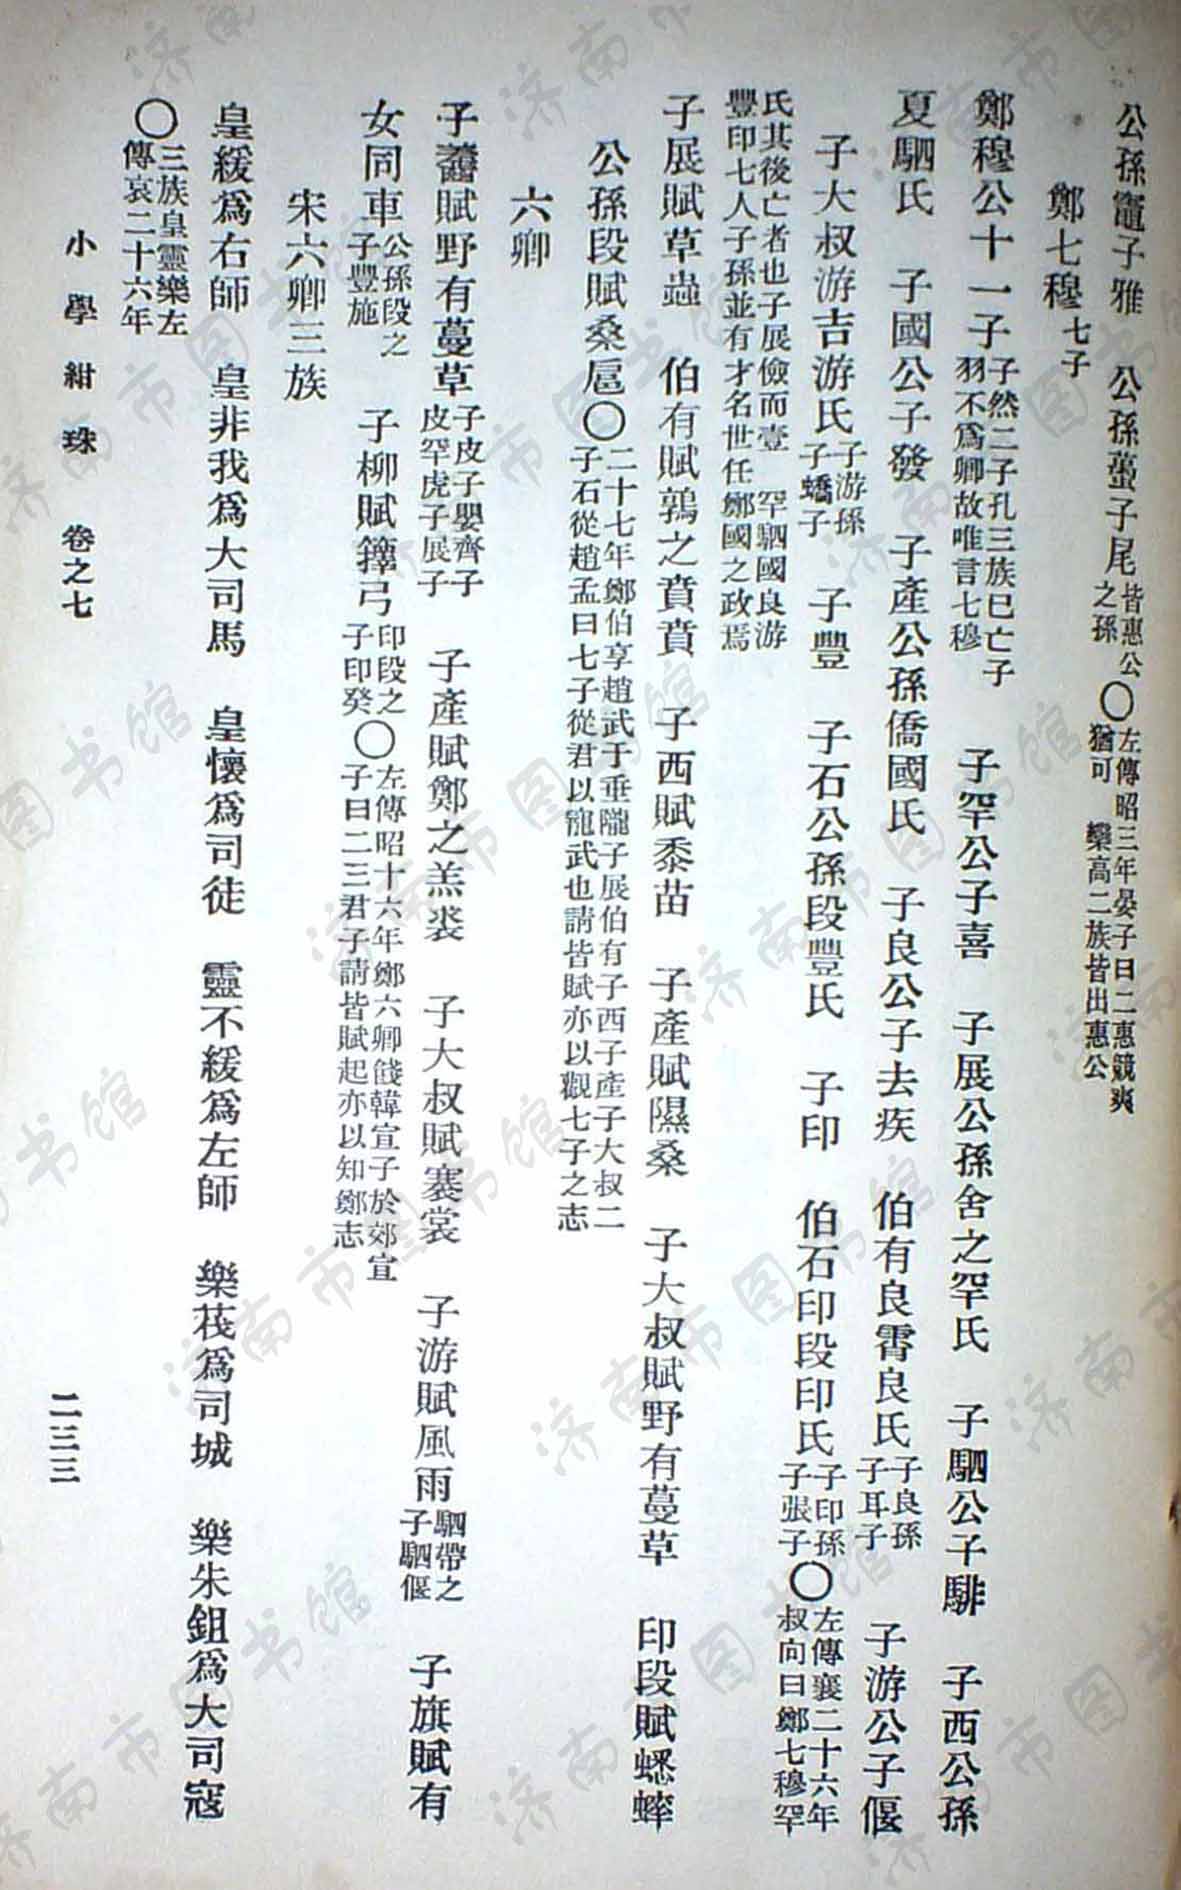 公孫竈子雅　公孫蠆子尾皆惠公之孫〇左傳昭三年晏子曰二惠競爽猶可　欒高二族皆出惠公
鄭七穆七子
鄭穆公十一子子然二子孔三族已亡子羽不爲卿故唯言七穆　子罕公子喜　子展公孫舍之罕氏　子駟公子騑　子西公孫
夏駟氏　子國公子發　子產公孫僑國氏　子良公子去疾　伯有良霄良氏子良孫子耳子　子游公子偃
子大叔游吉游氏子游孫子蟜子　子豐　子石公孫段豐氏　子印　伯石印段印氏子印孫子張子〇左傳襄二十六年叔向曰鄭七穆罕
氏其後亡者也子展儉而壹　罕駟國良游豐印七人子孫並有才名世任鄭國之政焉
子展賦草蟲　伯有賦鶉之賁賁　子西賦黍苗　子產賦隰桑　子大叔賦野有蔓草　印段賦蟋蟀
公孫段賦桑扈〇二十七年鄭伯享趙武于垂隴子展伯有子西子產子大叔二子石從趙孟曰七子從君以寵武也請皆賦亦以觀七子之志
六卿
子齹賦野有蔓草子皮子嬰齊子皮罕虎子展子　子產賦鄭之羔裘　子大叔賦褰裳　子游賦風雨駟帶之子駟偃　子旗賦有
女同車公孫段之子豐施　子柳賦籜兮印段之子印癸〇左傳昭十六年鄭六卿餞韓宣子於郊宣子曰二三君子請皆賦起亦以知鄭志
宋六卿三族
皇緩爲右師　皇非我爲大司馬　皇懷爲司徒　靈不緩爲左師　樂茷爲司城　樂朱鉏爲大司寇
〇三族皇靈樂左傳哀二十六年
小學紺珠　卷之七　二三三
济南市图书馆